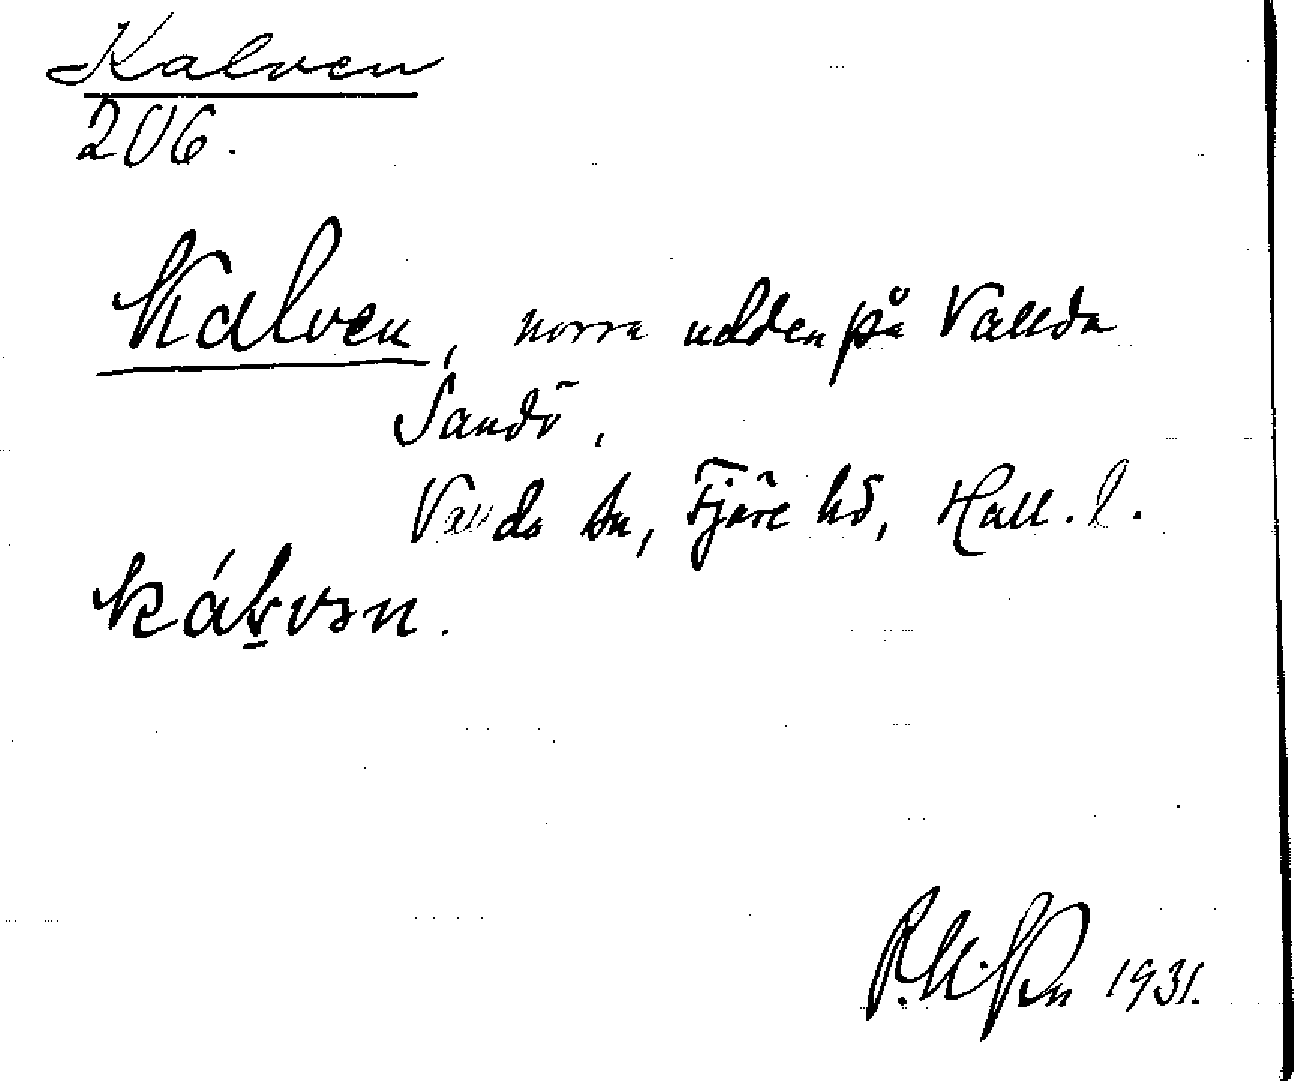 Kalven
206.
Kalven, norra udden på Vallda
Sandö,
Vallda sn, Fjäre hd, Hall. l.
kálvən.
1931.